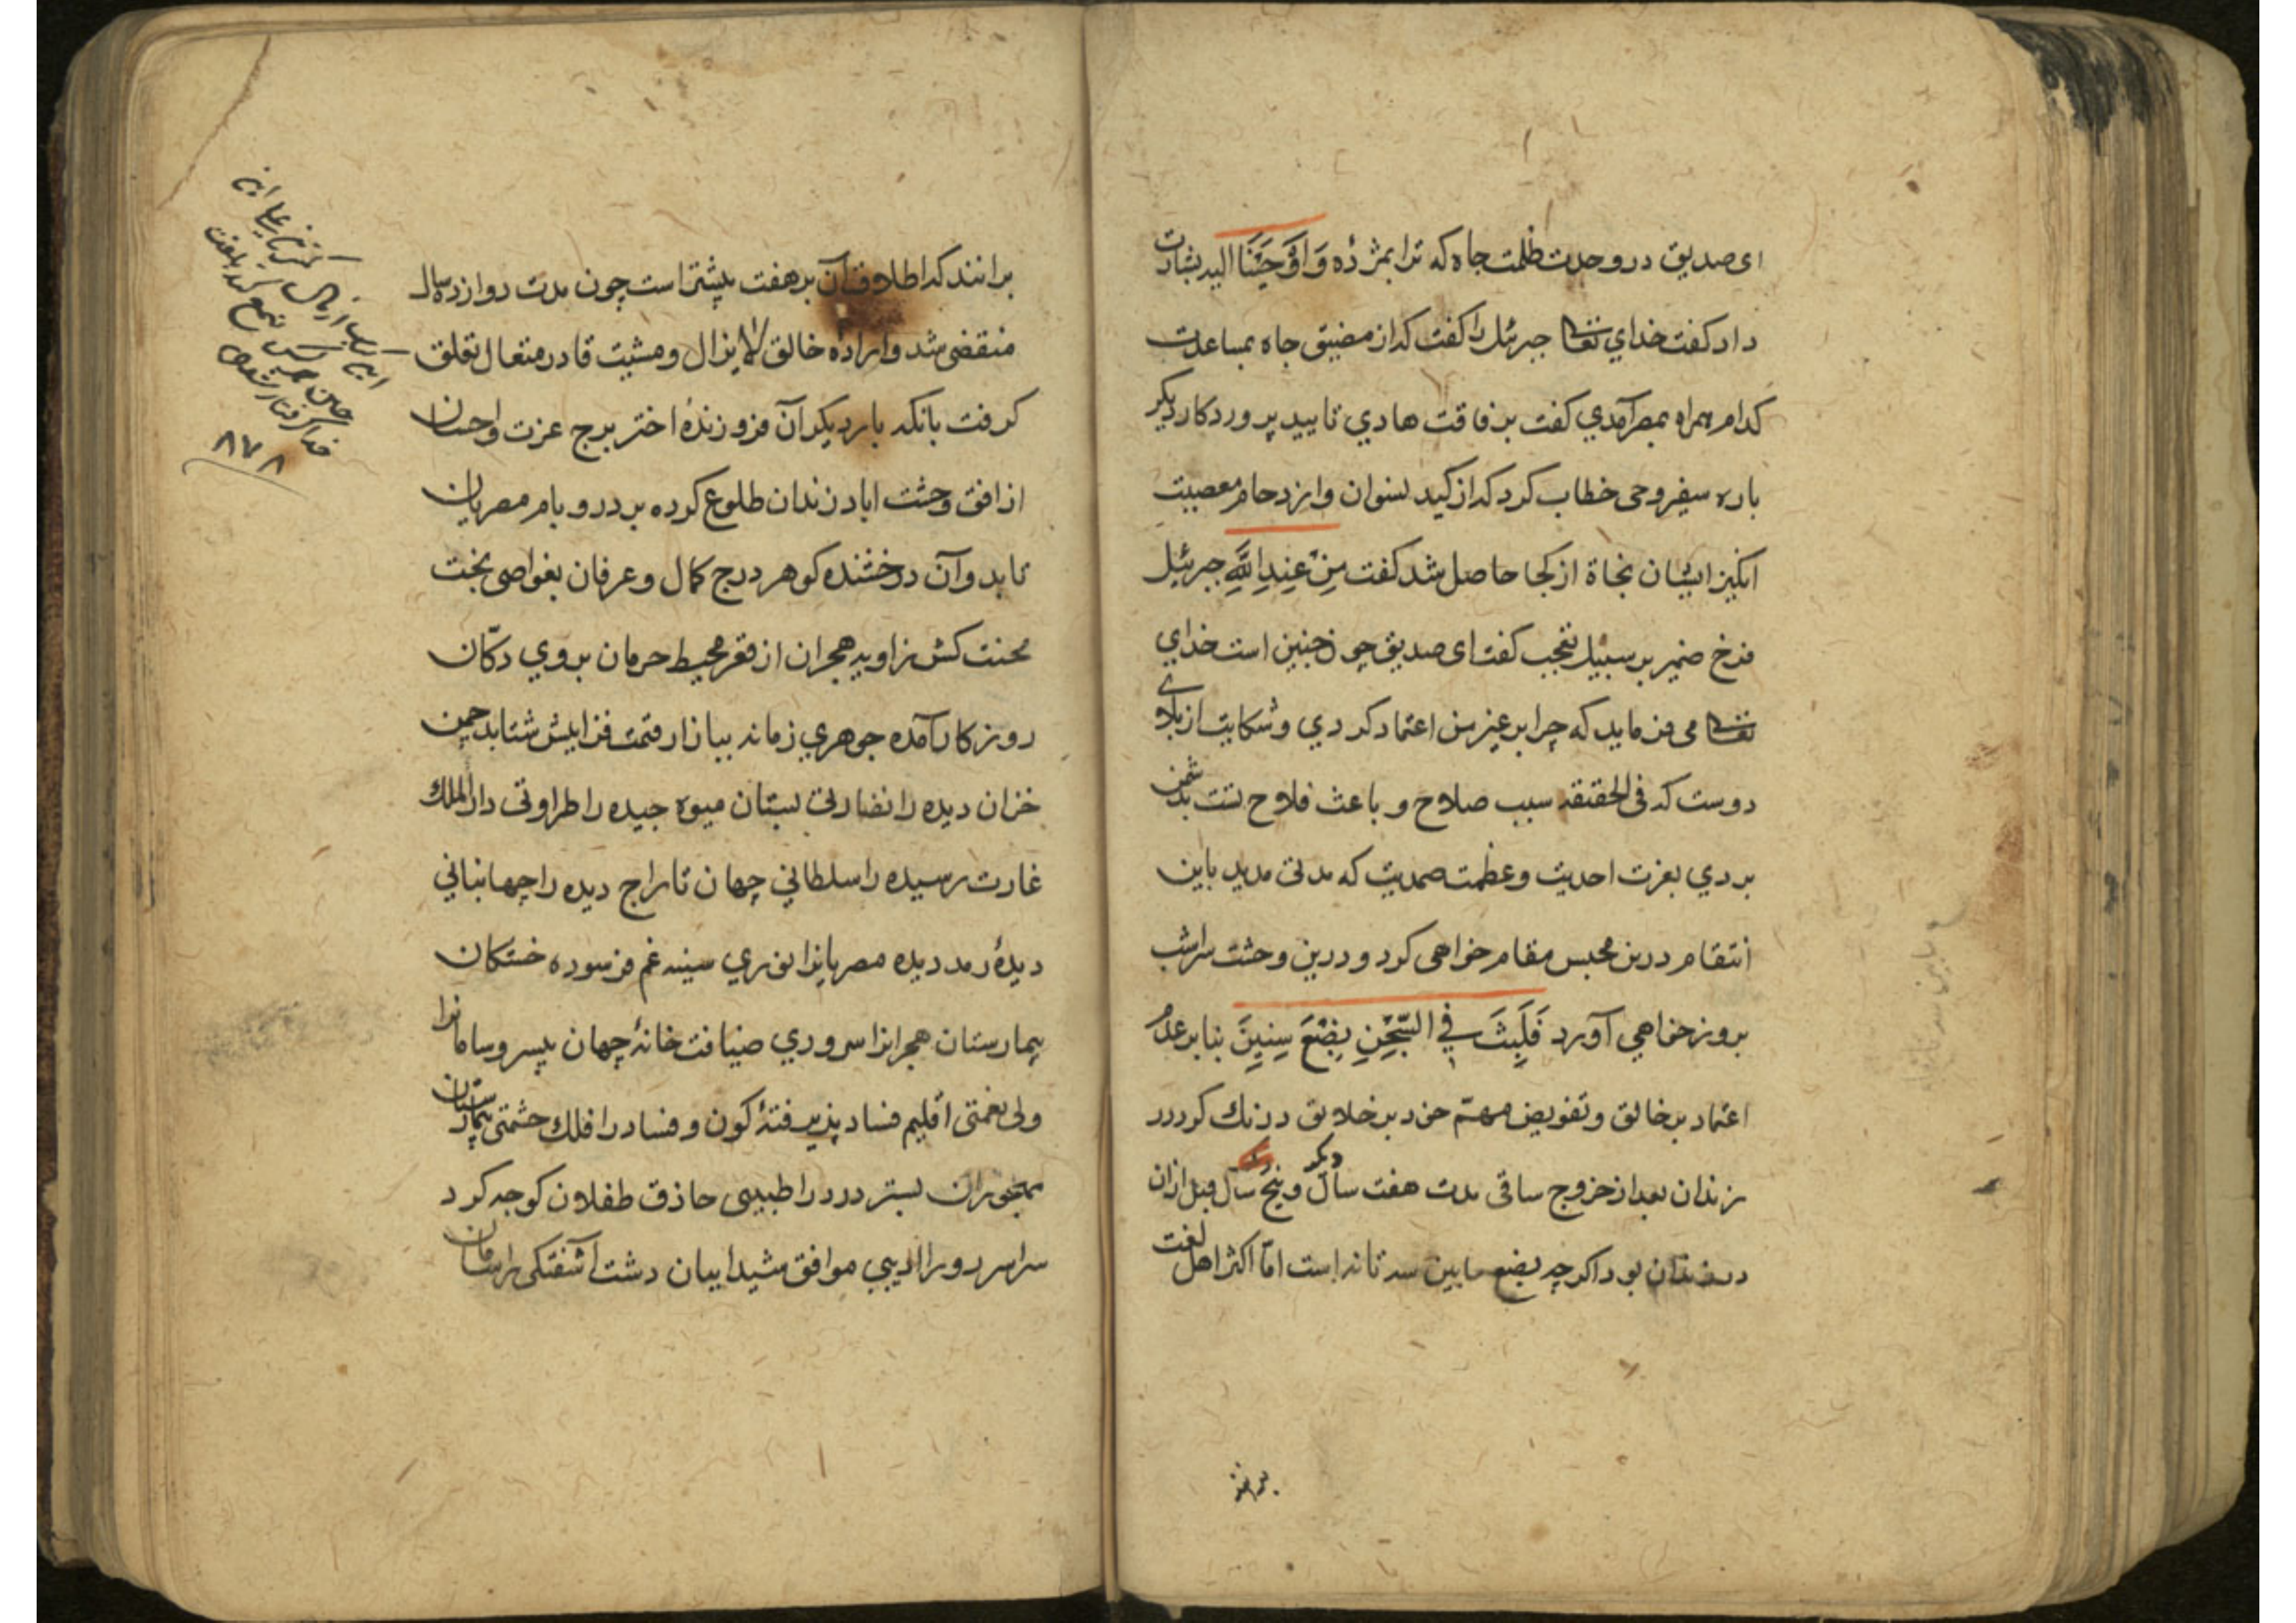 ای صدیق در وحدت ظلمت چاه که ترا بمژده وَاَوْحَیْنَا الیه بشارت
داد کفت خدای تعالی جبرئیل را کفت که از مضیق چاه بمساعدت
کدام همراه بمصر آمدی کفت برفاقت هادی تایید پروردکار دیکر
باره سفیر وحی خطاب کرد که از کید نسوان و ازدحام معصیت
انکیز ایشان نجاة از کجا حاصل شد کفت مِنْ عِنْدِ اللَّهِ جبرئیل
فرخ ضمیر بر سبیل تعجب کفت ای صدیق چون چنین است خدای
تعالی می فرماید که چرا بر غیر من اعتماد کردی و شکایت از بلای
دوست که فی الحقیقه سبب صلاح و باعث فلاح تست بدشمن
بردی بعزت احدیت و عظمت صمدیت که مدتی مدید باین
انتقام درین محبس مقام خواهی کرد و درین وحشت سرا شب
بروز خواهی آورد فَلَبِثَ فِی السِّجْنِ بِضْعَ سِنِینَ بنا بر عدم
اعتماد بر خالق و تفویض مهمّ خود بر خلایق درنك کرد در
زندان بعد از خروج ساقی مدت هفت سال دیکر و پنج سال قبل ازان
در زندان بود اکرچه بضع مابین سه تا نه است امّا اکثر اهل لغت
برانند
برانند که اطلاق آن بر هفت بیشتر است چون مدت دوازده سال
منقضی شد و ارادهٔ خالق لایزال و مشیت قادر متعال تعلق
کرفت بانکه بار دیکر آن فروزندهٔ اختر برج عزت و احسان
از افق وحشت اباد زندان طلوع کرده بر در و بام مصریان
تابد و آن درخشنده کوهر درج کمال و عرفان بغواصی بخت
محنت کش زاویه هجران از قعر محیط حرمان بروی دکّان
روز کار آمده جوهری زمانه ببازار قیمت فزایش شتابد چمن
خزان دیده را نضارتی بستان میوه چیده را طراوتی دار الملك
غارت رسیده را سلطانی جهان تاراج دیده را جهانبانی
دیدهٔ رمد دیده مصریانرا نوری سینه غم فرسوده خستکان
بیمارستان هجرانرا سروری ضیافت خانهٔ جهان بیسر و سامانرا
ولی نعمتی اقلیم فساد پذیرفتهٔ کون و فساد را فلك حشمتی بیمارستان
رنجوران بستر درد را طبیبی حاذق طفلان کوچه کرد
سراسر دو را ادیبی موافق شیداییان دشت آشفتکی را سامان
۸۷۸